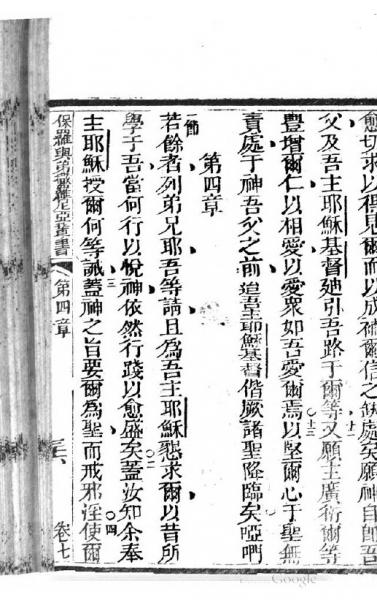 愈切求以得見爾面以成補爾信之缺處矣願神自即吾
父及吾主耶穌基督廸引吾路于爾等又願主廣衍爾等
十二
豐增爾仁以相愛以愛衆如吾愛爾焉以堅爾心于聖無
十三
責處于神吾父之前迨吾主耶穌基督偕厥諸聖降臨矣啞吶
第四章
一節
若餘者列弟兄耶吾等請且為吾主耶穌懇求爾以昔所
學于吾當何行以悅神依然行踐以愈盛矣蓋汝知余奉
二
主耶穌授爾何等誡蓋神之旨要爾為聖而戒邪淫使爾
三
四
第四章
卷七
Google